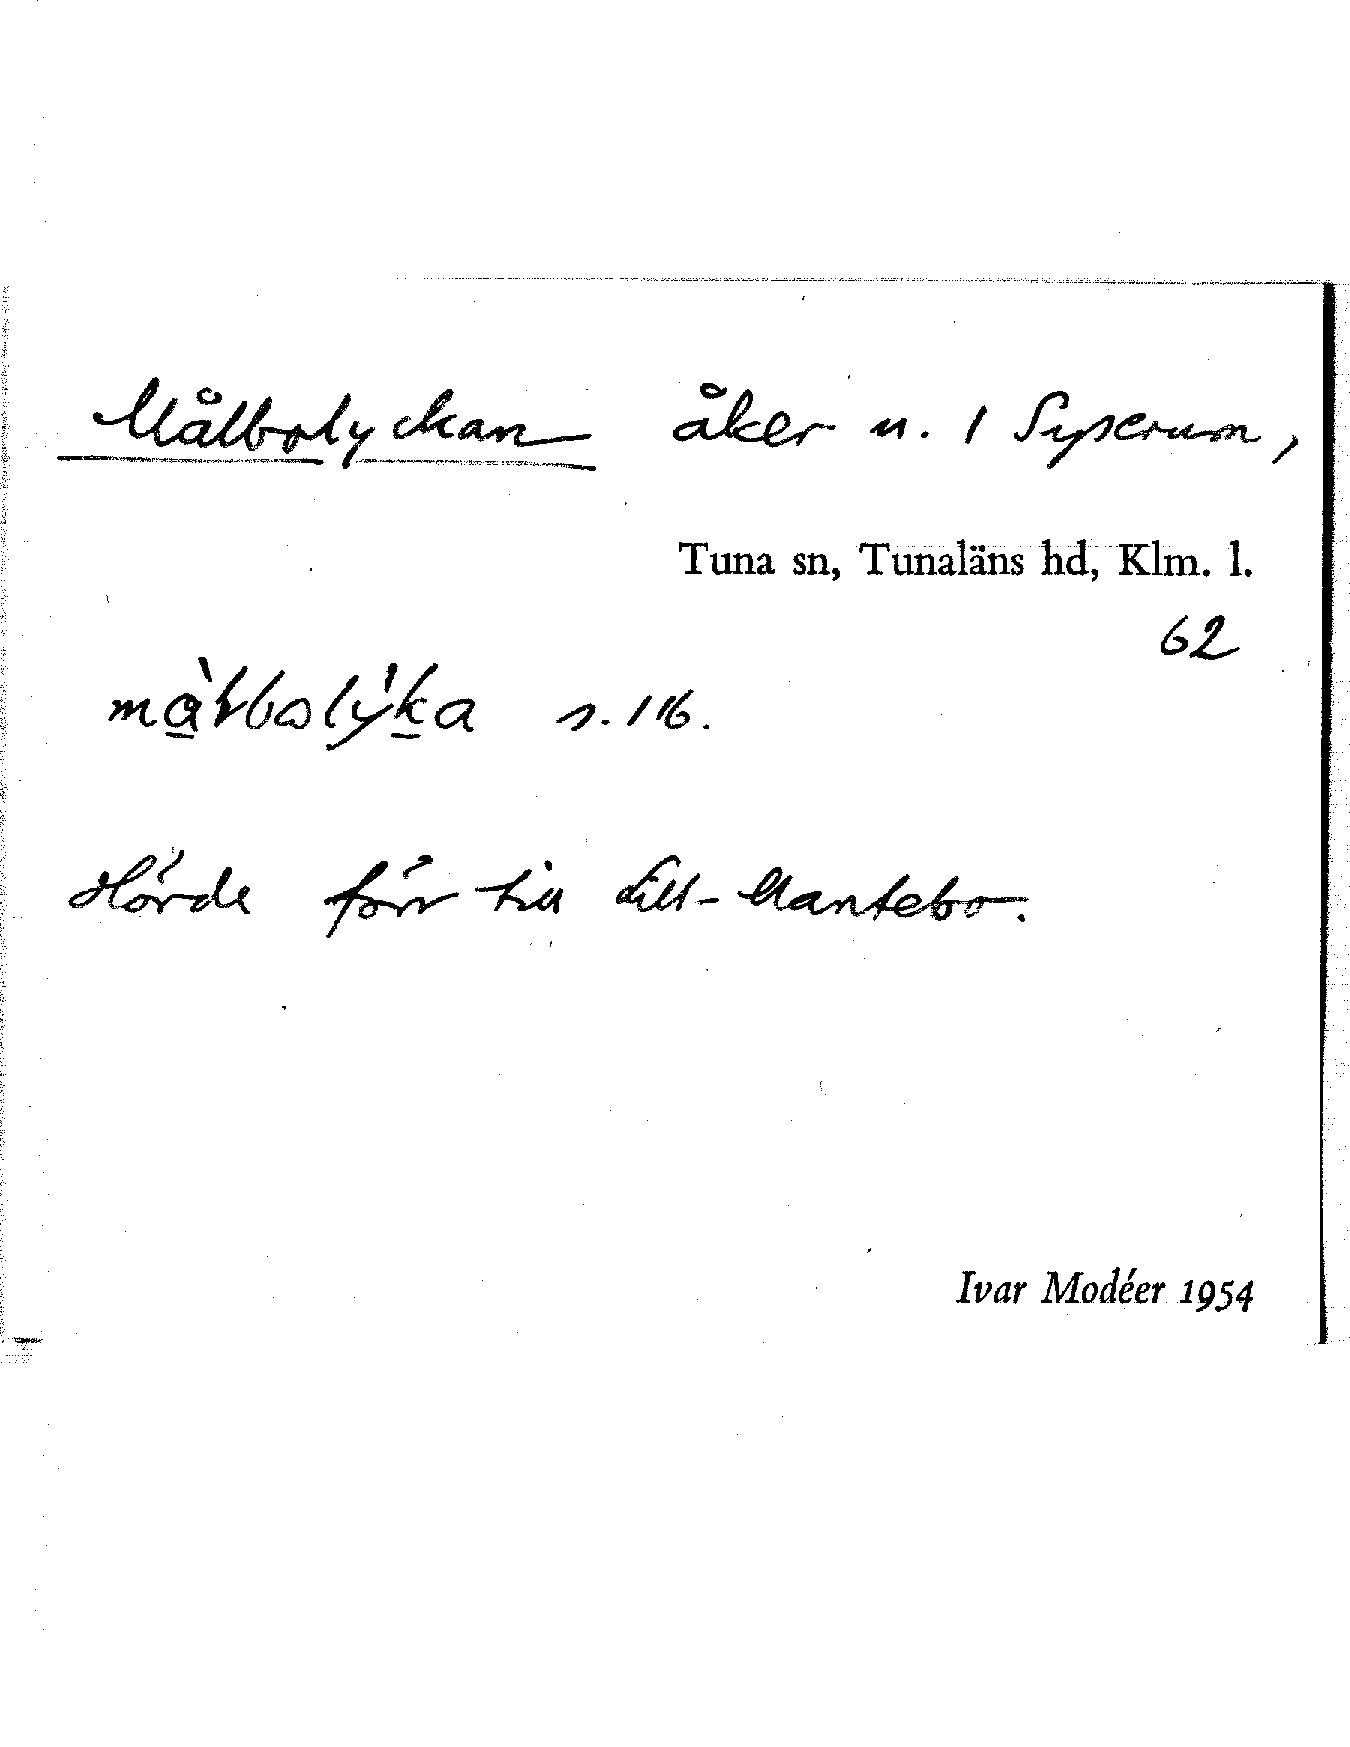 Målbolyckan åker n. 1 Syserum,
Tuna sn, Tunaläns hd, Klm. l.
62
s. 116.
Hörde förr till Lill-Mantebo.
Ivar Modéer 1954